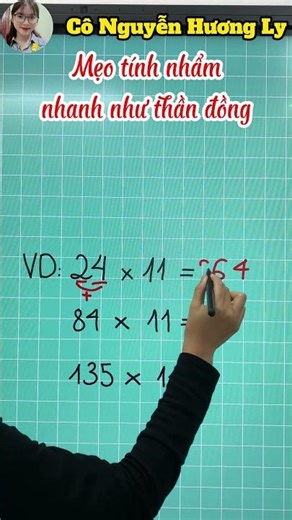 Cô Nguyễn Hương Ly
Mẹo tính nhẩm
nhanh như thần đồng
VD: 24 × 11 = 264
+
84 × 11 =
135 × 1